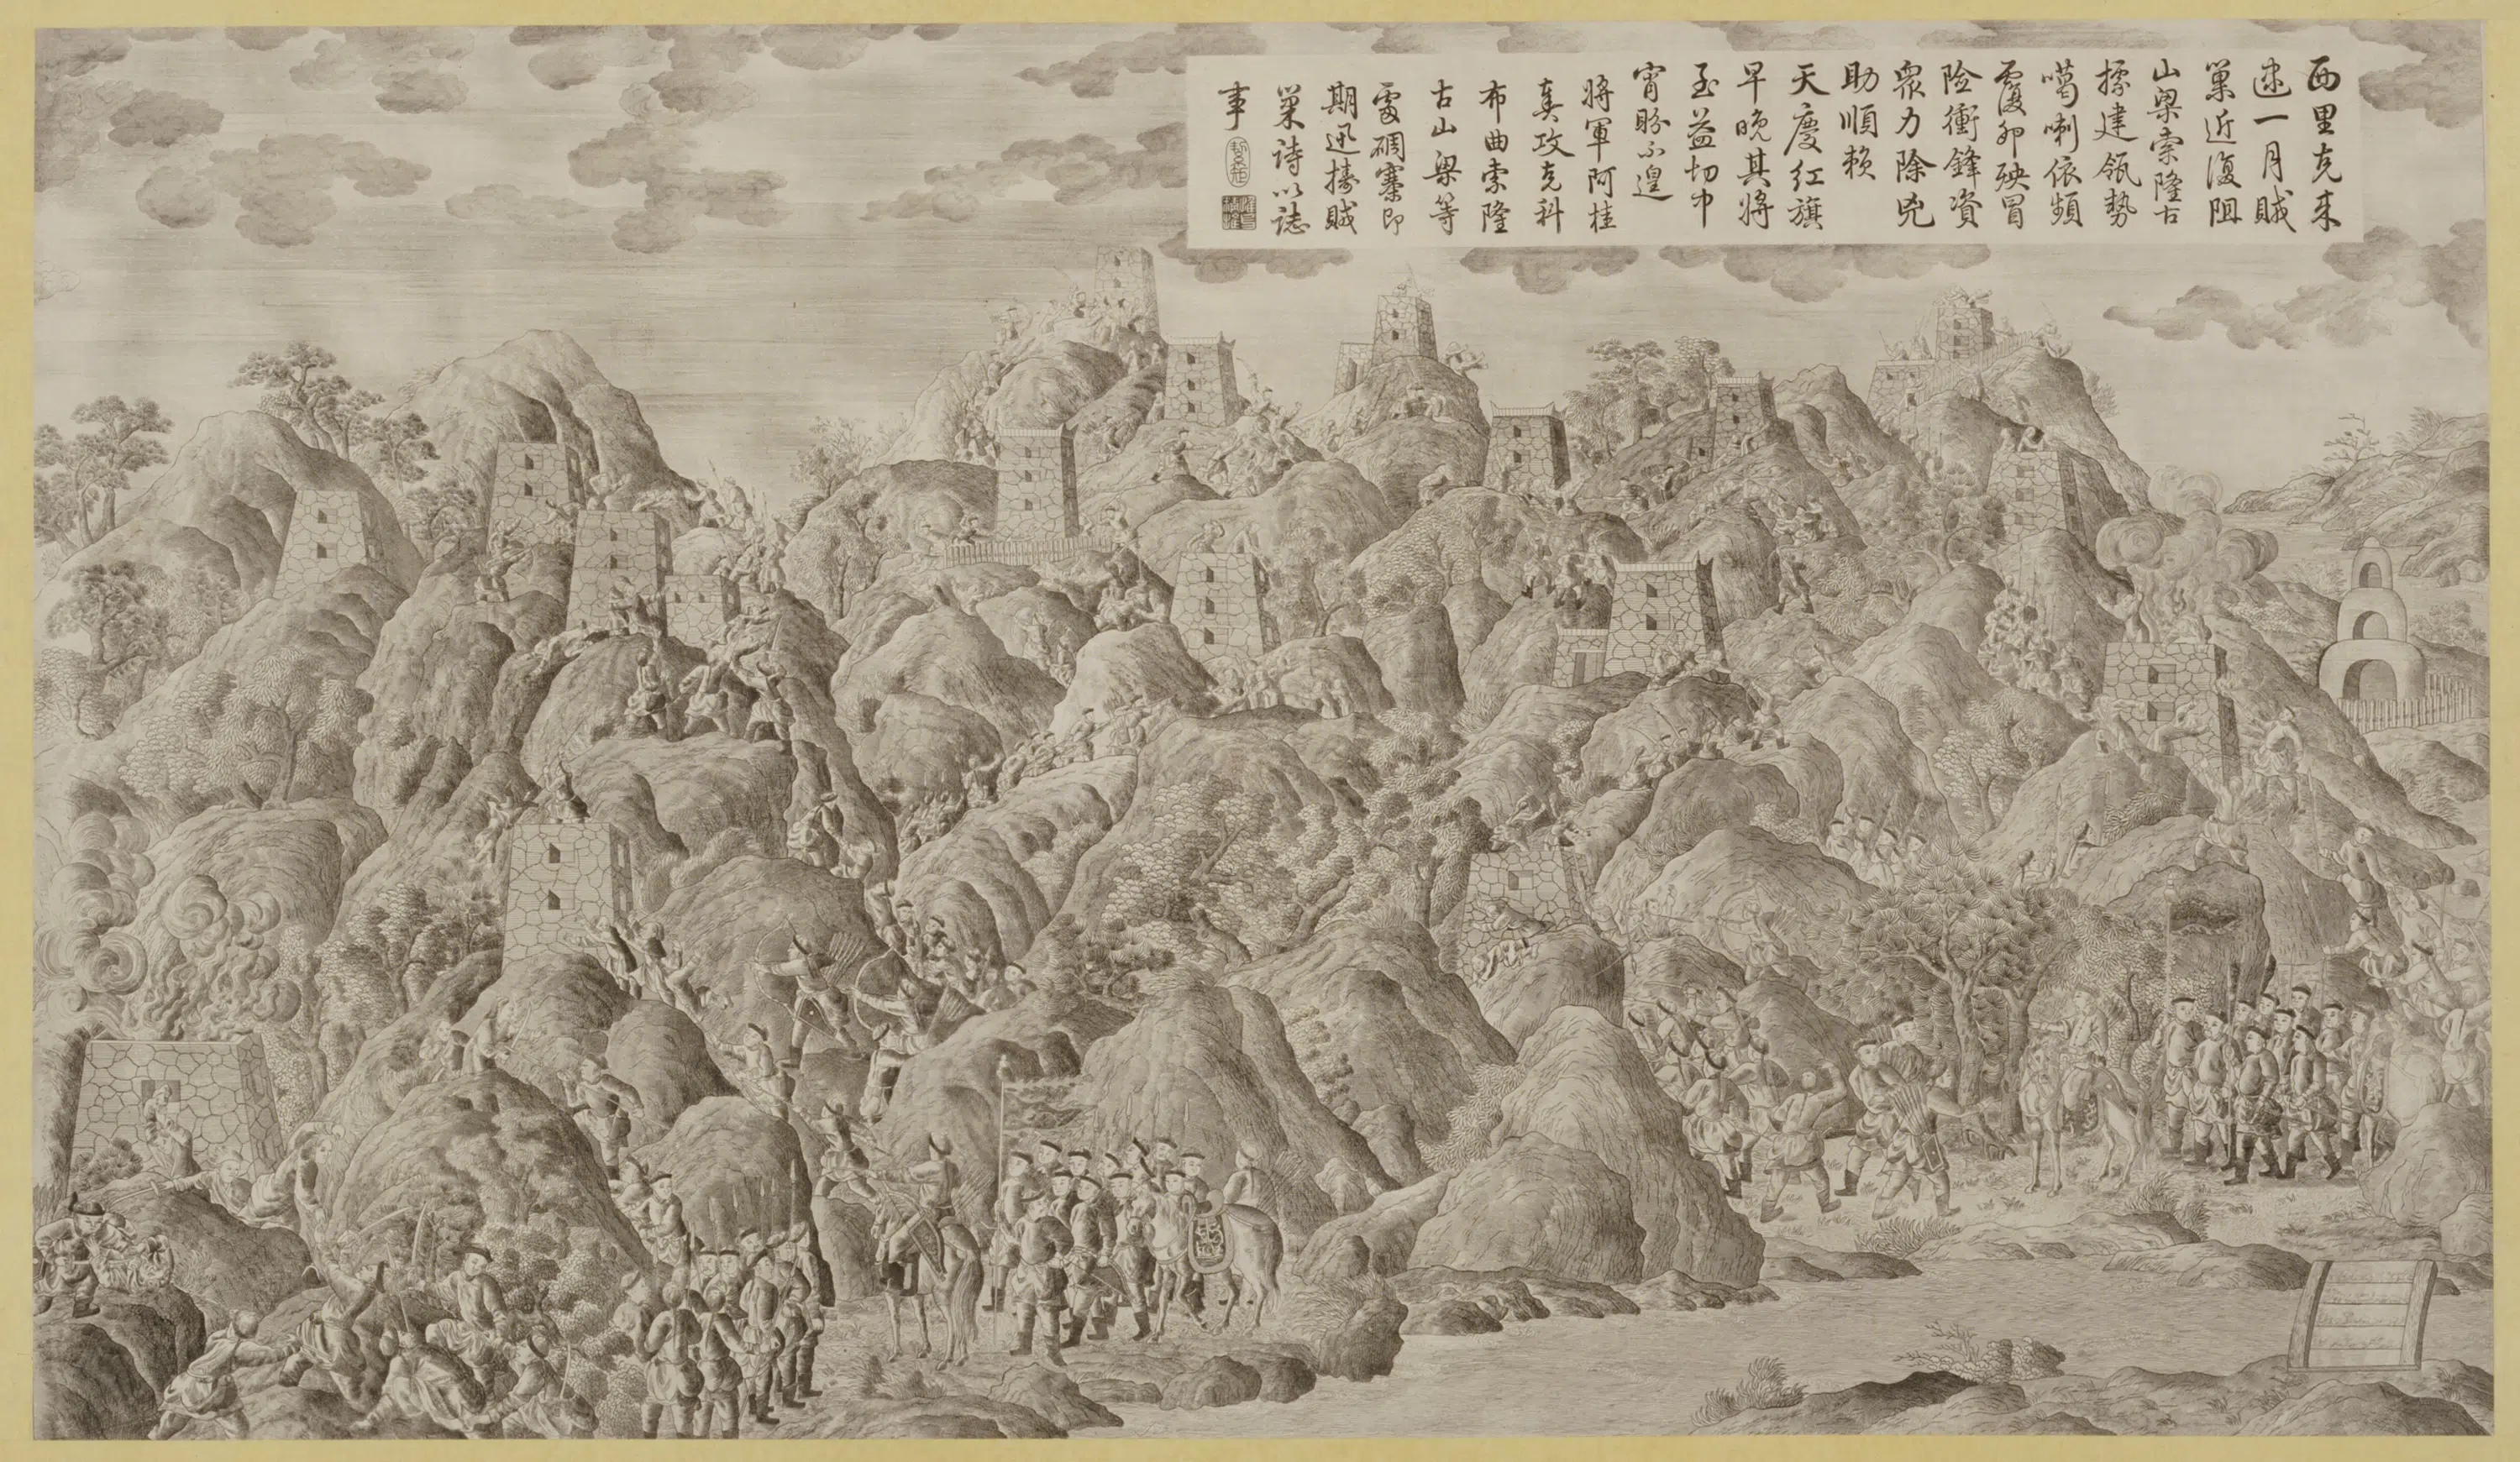 西里克来
逮一月賊
巢近復阻
山梁索隆古
據建瓴勢
噶喇依頻
覆卵殃冒
險衝鋒資
眾力除兇
助順賴
天慶紅旗
早晚其將
至益切中
宵盼不遑
將軍阿桂
奏攻克科
布曲索隆
古山梁等
處碉寨即
期迅擣賊
巢詩以誌
事